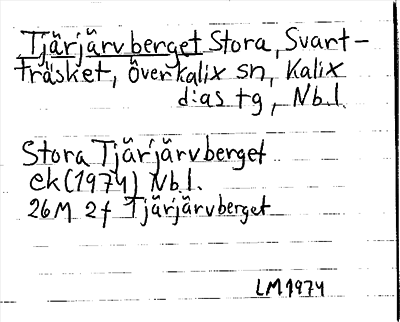 Tjärjärvberget Stora, Svart-
träsket, Överkalix sn, Kalix
d:as tg, Nb.l.
Stora Tjärjärvberget
ek (1974) Nb.l.
26M 2f Tjärjärvberget
LM1974